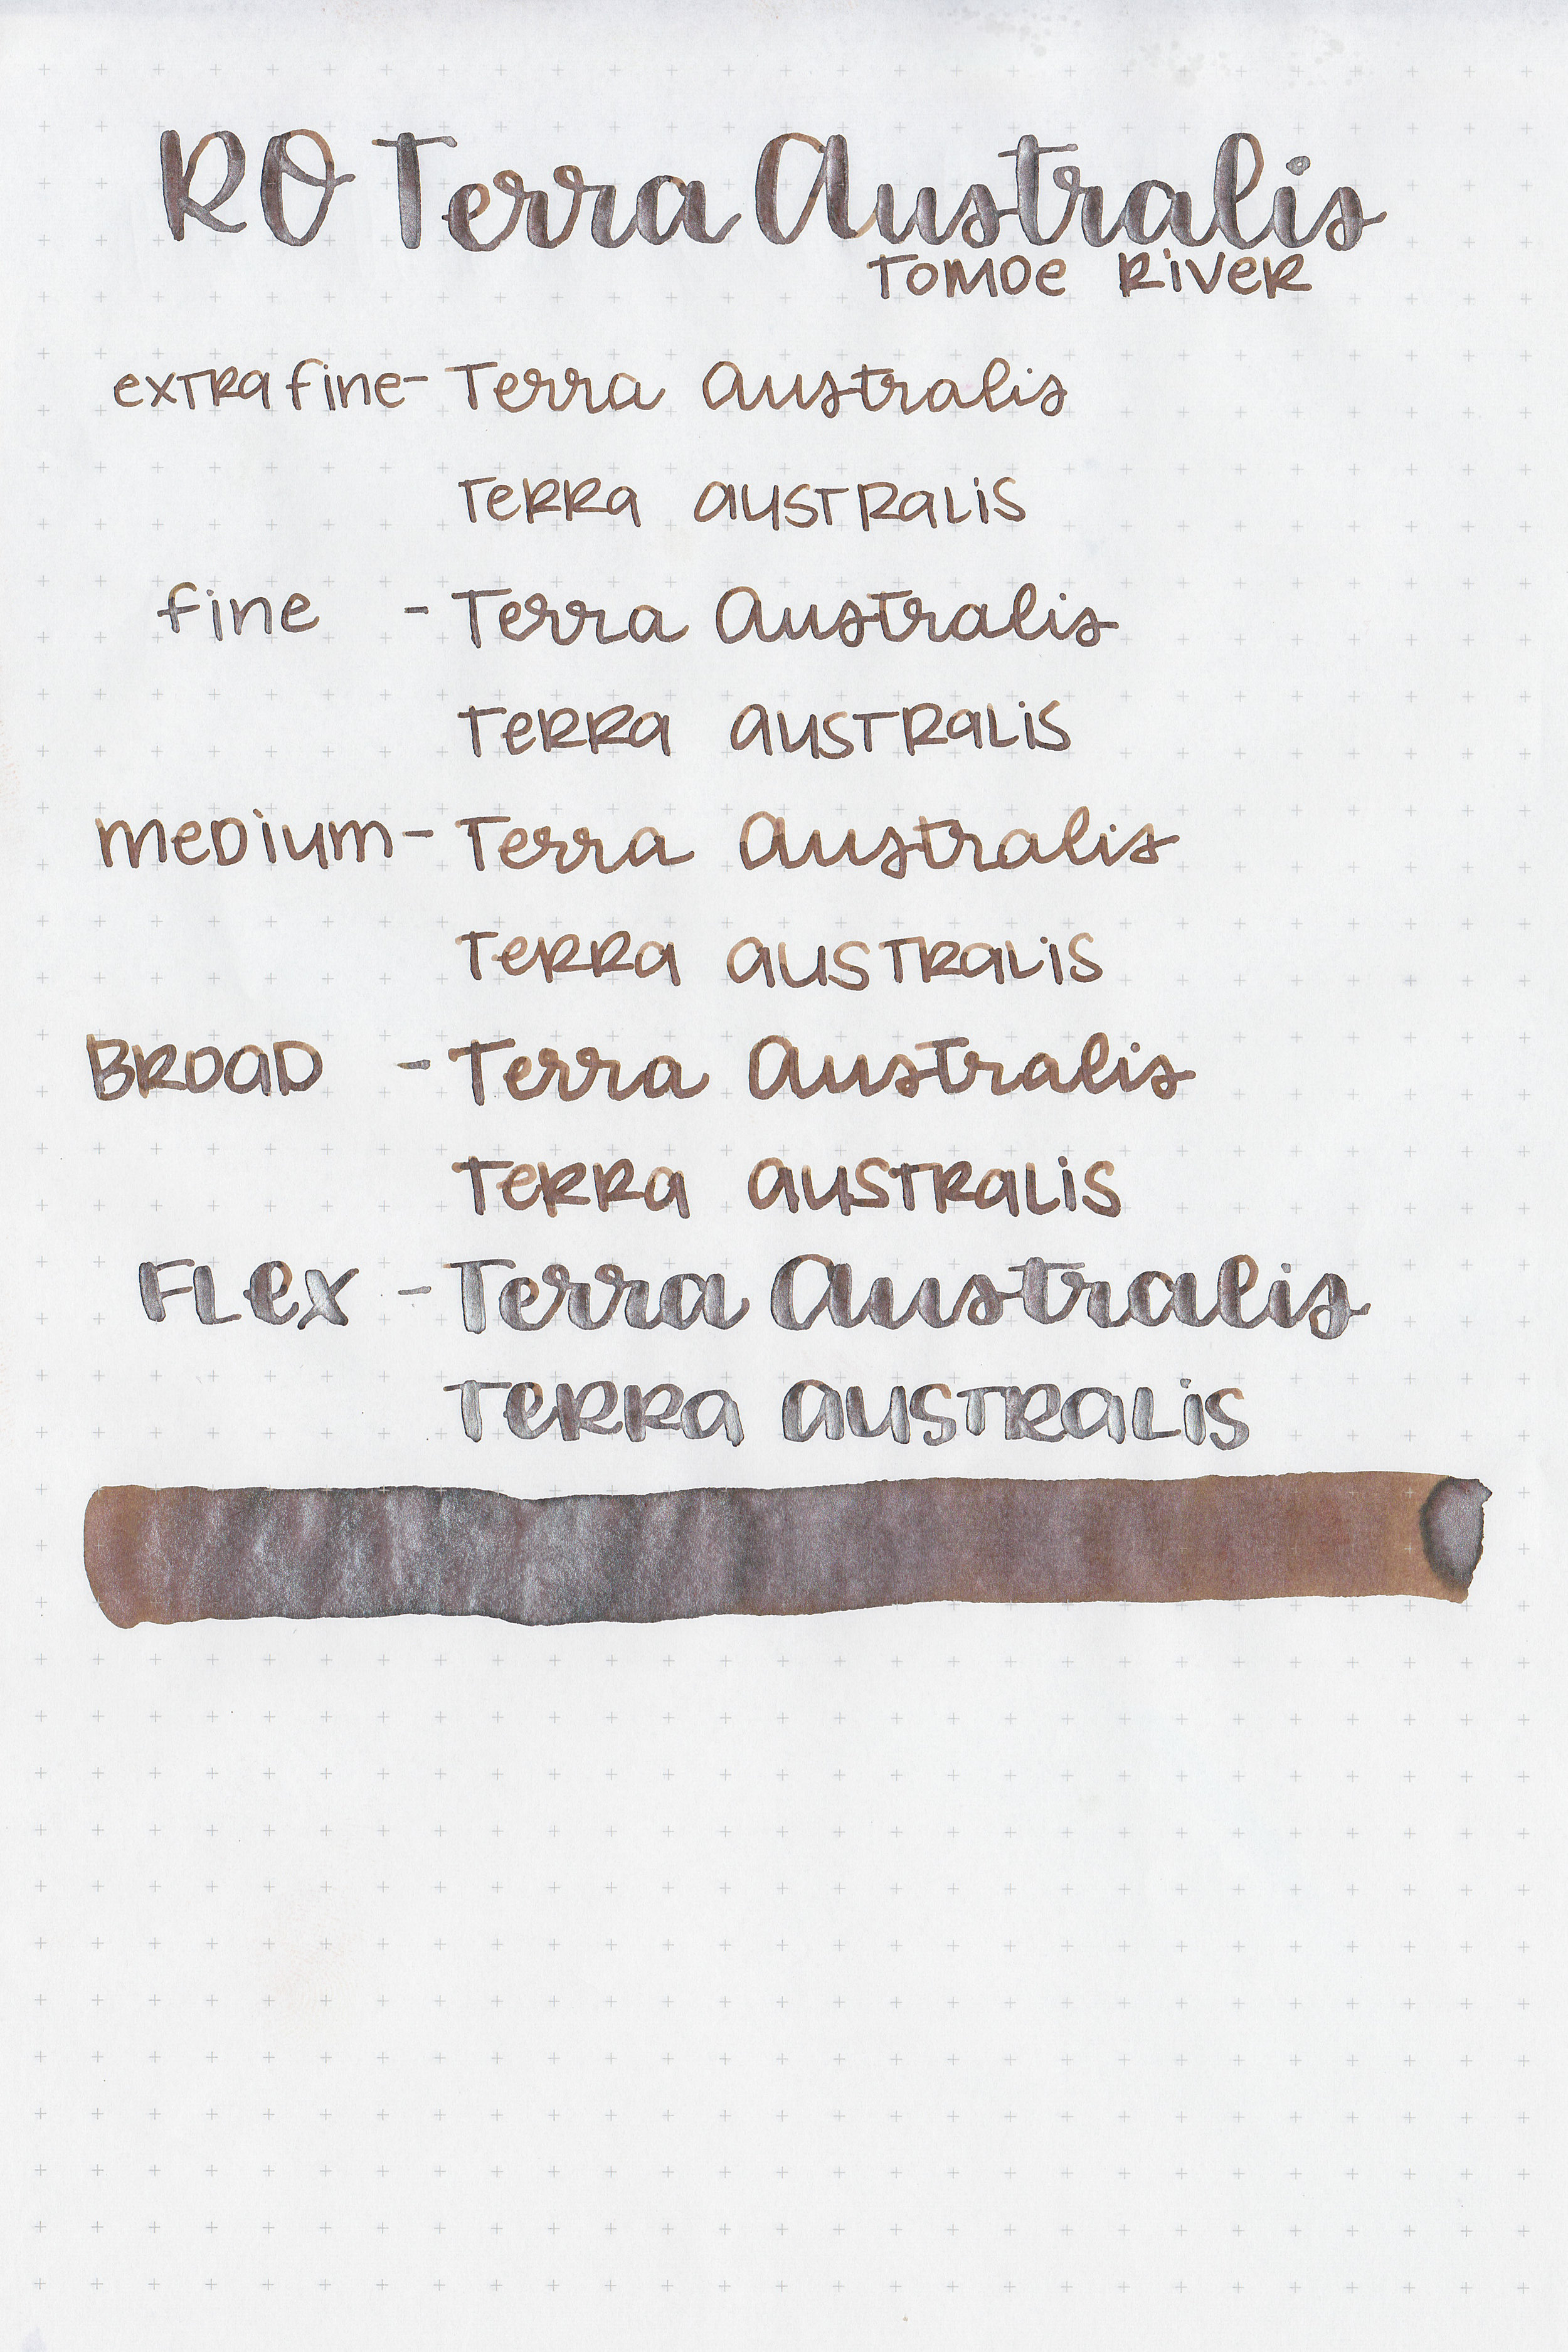 RO Terra Australis
TOMOE RIVER
extra fine - Terra Australis
Terra Australis
fine - Terra Australis
Terra Australis
medium - Terra Australis
Terra Australis
BROAD - Terra Australis
Terra Australis
FLex - Terra Australis
Terra Australis